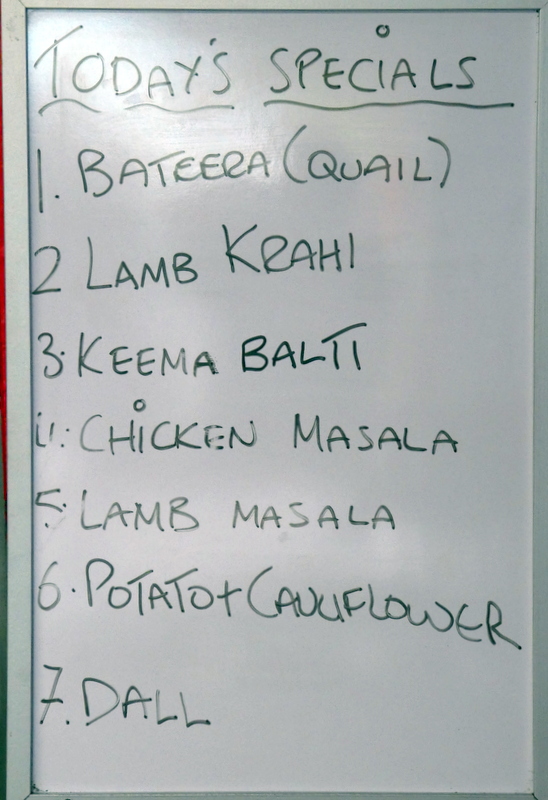 TODAY'S SPECIALS
1. BATEERA (QUAIL)
2 LAMB KRAHI
3. KEEMA BALTI
4. CHICKEN MASALA
5. LAMB MASALA
6. POTATO + CAULIFLOWER
7. DALL